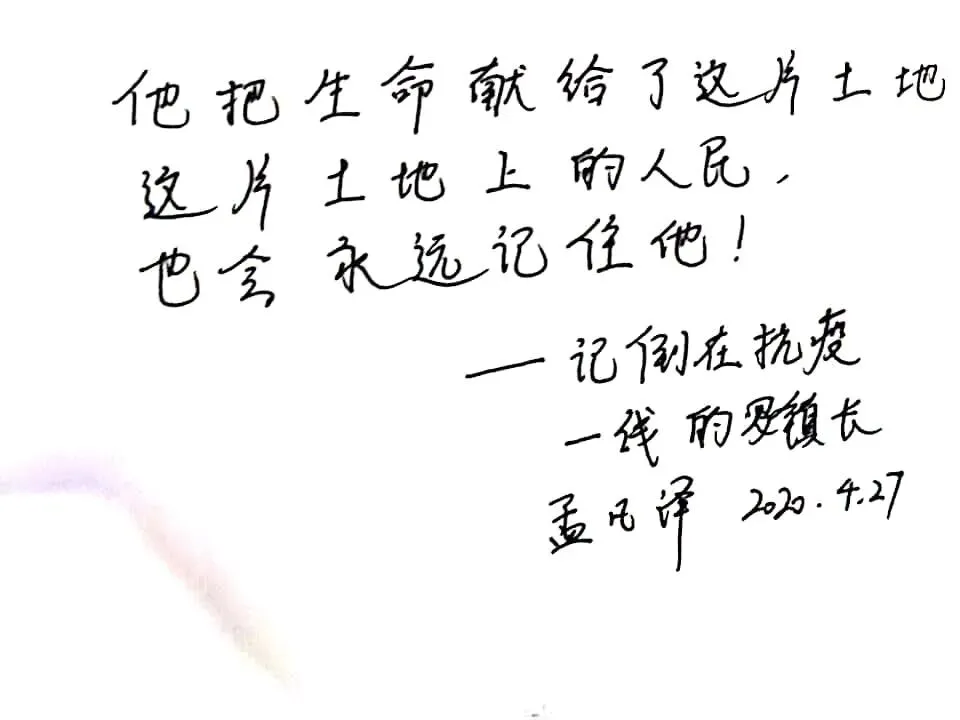 他把生命献给了这片土地
这片土地上的人民,
也会永远记住他!
—记倒在抗疫
一线的罗镇长
孟凡泽 2020.4.27